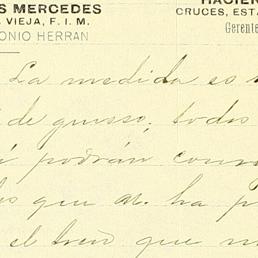 S MERCEDES
VIEJA, F. I. M.
ONIO HERRAN
HACIEN
CRUCES, ESTA
Gerente
La medida es
de grueso; todos
podrán
que se ha
el tren que